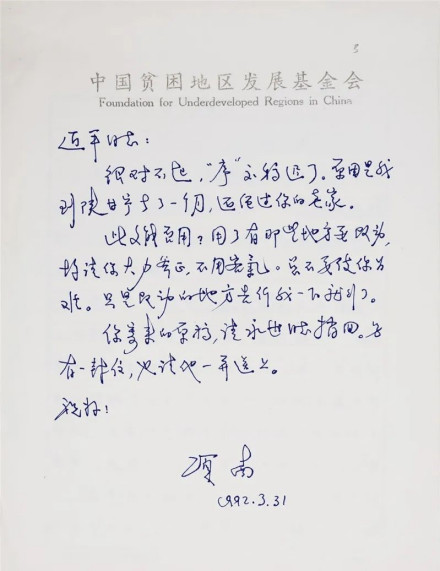 3
中国贫困地区发展基金会
Foundation for Underdeveloped Regions in China
近平同志:
很对不起,“序”文稿迟了。原因是我
到陕甘宁去了一个月,还经过你的老家。
此文能否用?用了有那些地方要改动,
均请你大力斧正,不用客气。总不要使你为
难。只是改动的地方先行我一下就行了。
你寄来的原稿,请永世同志捎回。另
有一封信,也请他一并送上。
祝好!
项南
1992.3.31